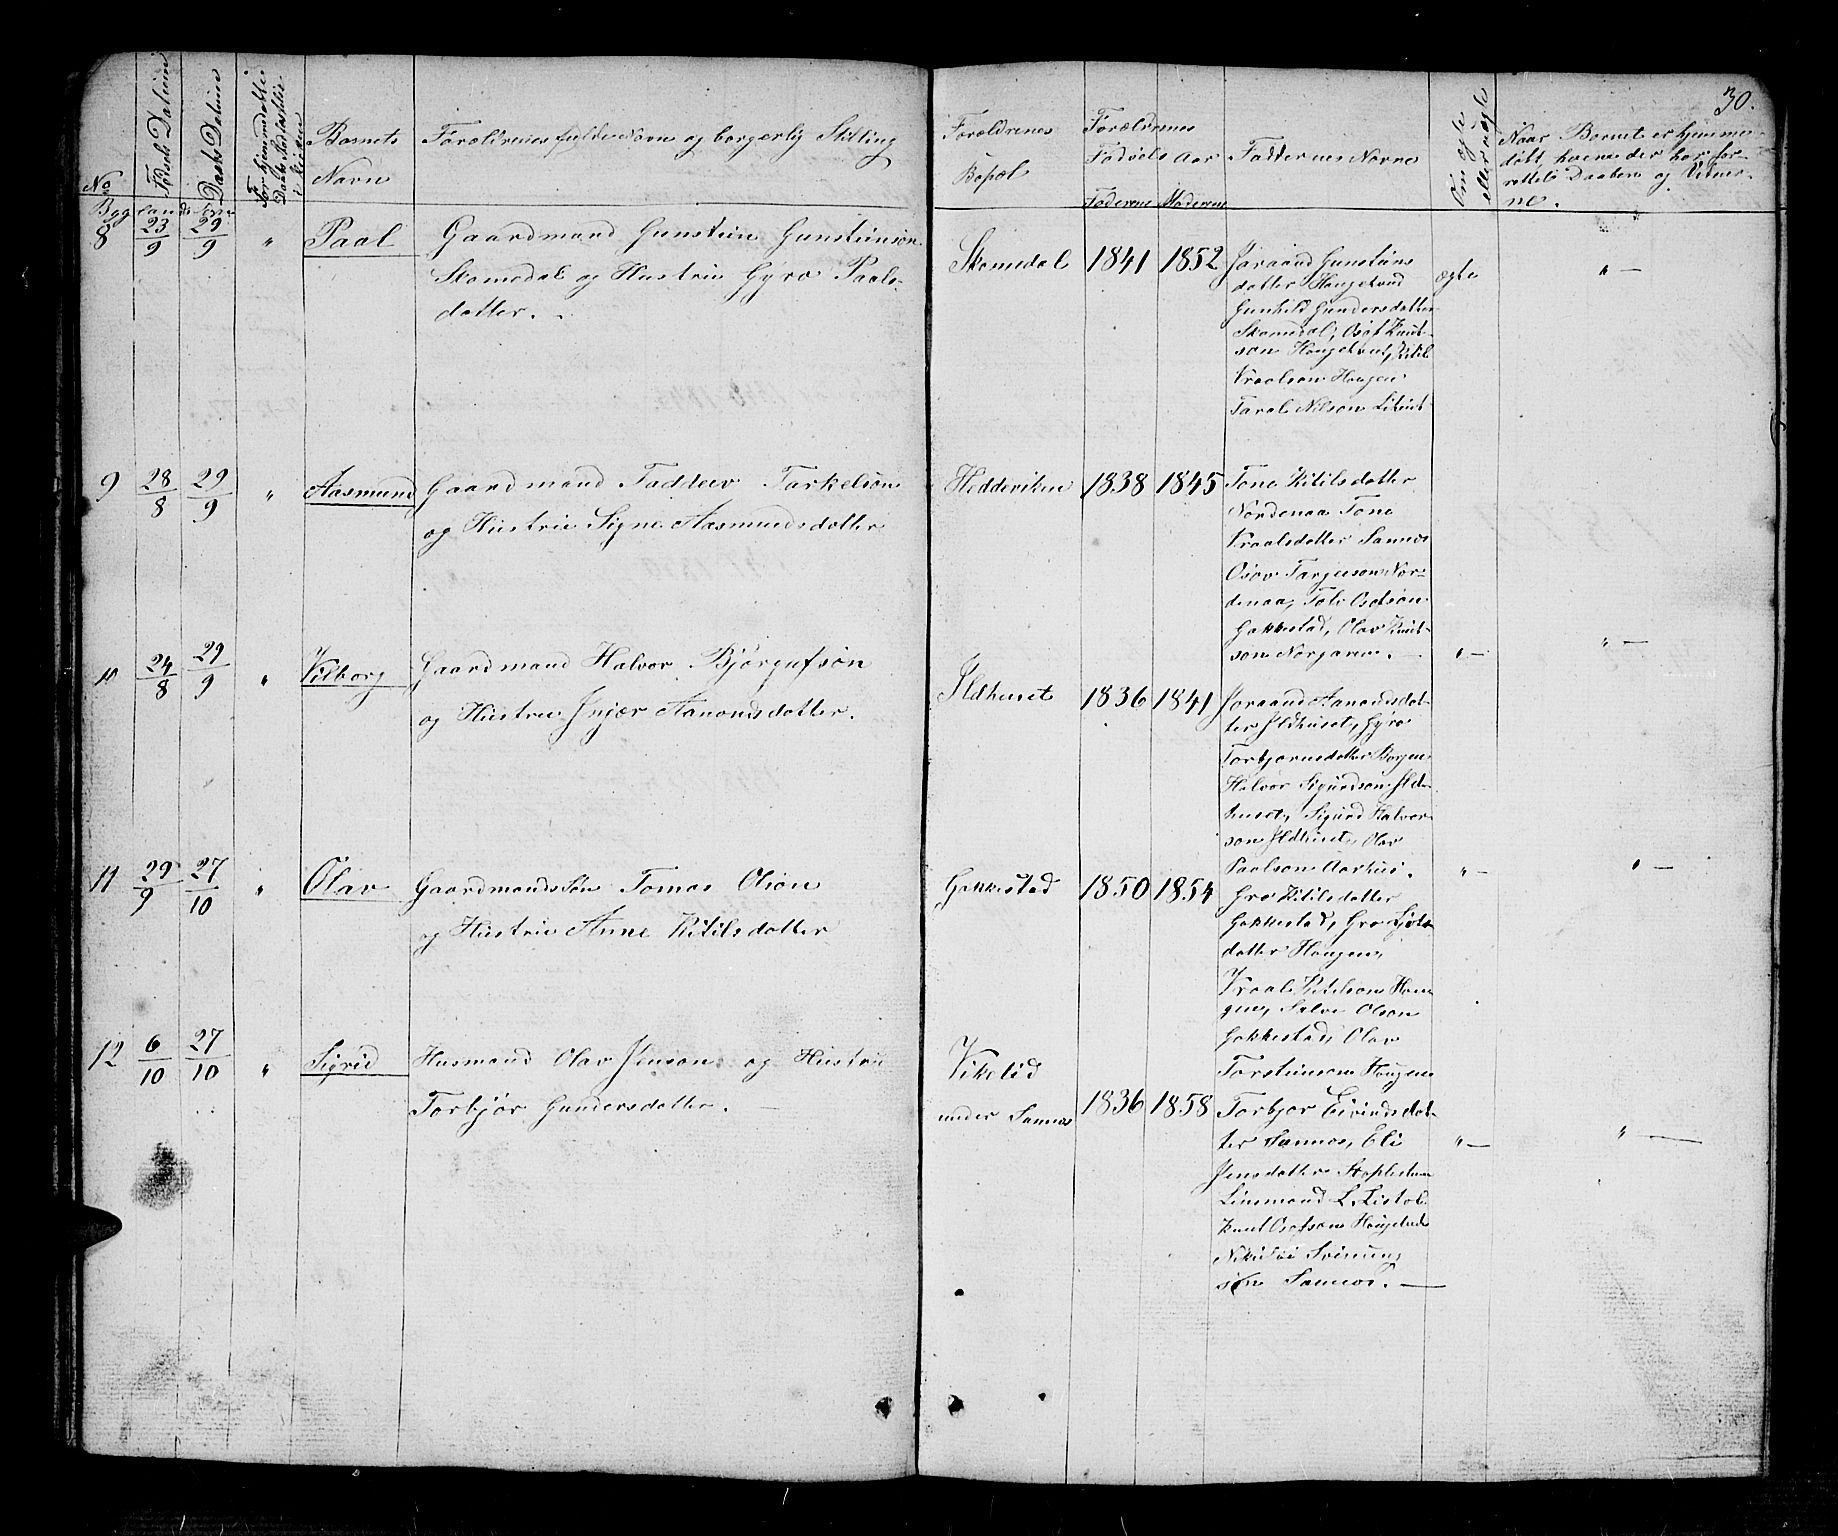 30.
No
Fødsels Datum
Daabs Datum
For hjemmedøbte Daabs Stadfæstelse i Kirken
Barnets Navn
Forældrenes fulde Navn og borgerlig Stilling
Forældrenes Bopæl
Forældrenes Fødsels Aar
Faderens Moderens
Faddernes Navne
Om ægte eller uægte
Naar Barnet er hjemme-
døbt, hvem der har for-
rettet Daaben og Vidner-
ne.
Byglands Sogn
8 23/9 29/9 " Paal
Gaardmand Gunstein Gunsteinsøn
Skomedal og Hustrue Gyro Paals-
datter.
Skomedal 1841 1852
Joraand Gunsteins
datter Haugetved
Gunhild Gundersdatter
Skomedal, Osof Knut-
son Haugetveit, Kitil
Vraalson Haugen
Taral Nilson Litveit
ægte " —
9 28/8 29/9 " Aasmund
Gaardmand Tadleiv Tarkelson
og Hustrue Signe Aasmundsdatter
Hedderviken 1838 1845
Tone Kitilsdatter
Nordenaa Tone
Vraalsdatter Sannes
Osov Targerson Nor-
denaa, Tolv Osofson
Gakkestad, Olav Knut-
son Norgarden. —
" — " —
10 24/8 29/9 " Vilborg
Gaardmand Halvor Bjørgufsøn
og Hustrue Injær Aanonsdatter.
Ildhuset 1836 1841
Joraand Aanonsdat-
ter Ildhuset, Gyro
Torbjørnsdatter Borgen
Halvor Sigurdson Ild-
huset, Sigurd Halvor-
son Ildhuset, Olav
Paalson Aarhus.
" — " —
11 29/9 27/10 " Olav
Gaardmands Søn Tomas Olson
og Hustrue Anne Kitilsdatter
Gakkestad 1850 1854
Gro Kitilsdatter
Gakkestad, Gro
datter Haugen,
Vraal Kitilson Hau-
gen, Salve Olson
Gakkestad, Olav
Torsteinson Haugen
12 6/10 27/10 " Sigrid
Husmand Olav Jenson og Hustrue
Torbjør Gundersdatter. —
Vikelid
under Sannes 1836 1858
Torbjør Eivindsdat-
ter Sannes, Eli
Jensdatter
Linsmand L. Listol
Knut Osofson Haugetveit
Nikulai Sveinung
søn Sannes. —
" — " —